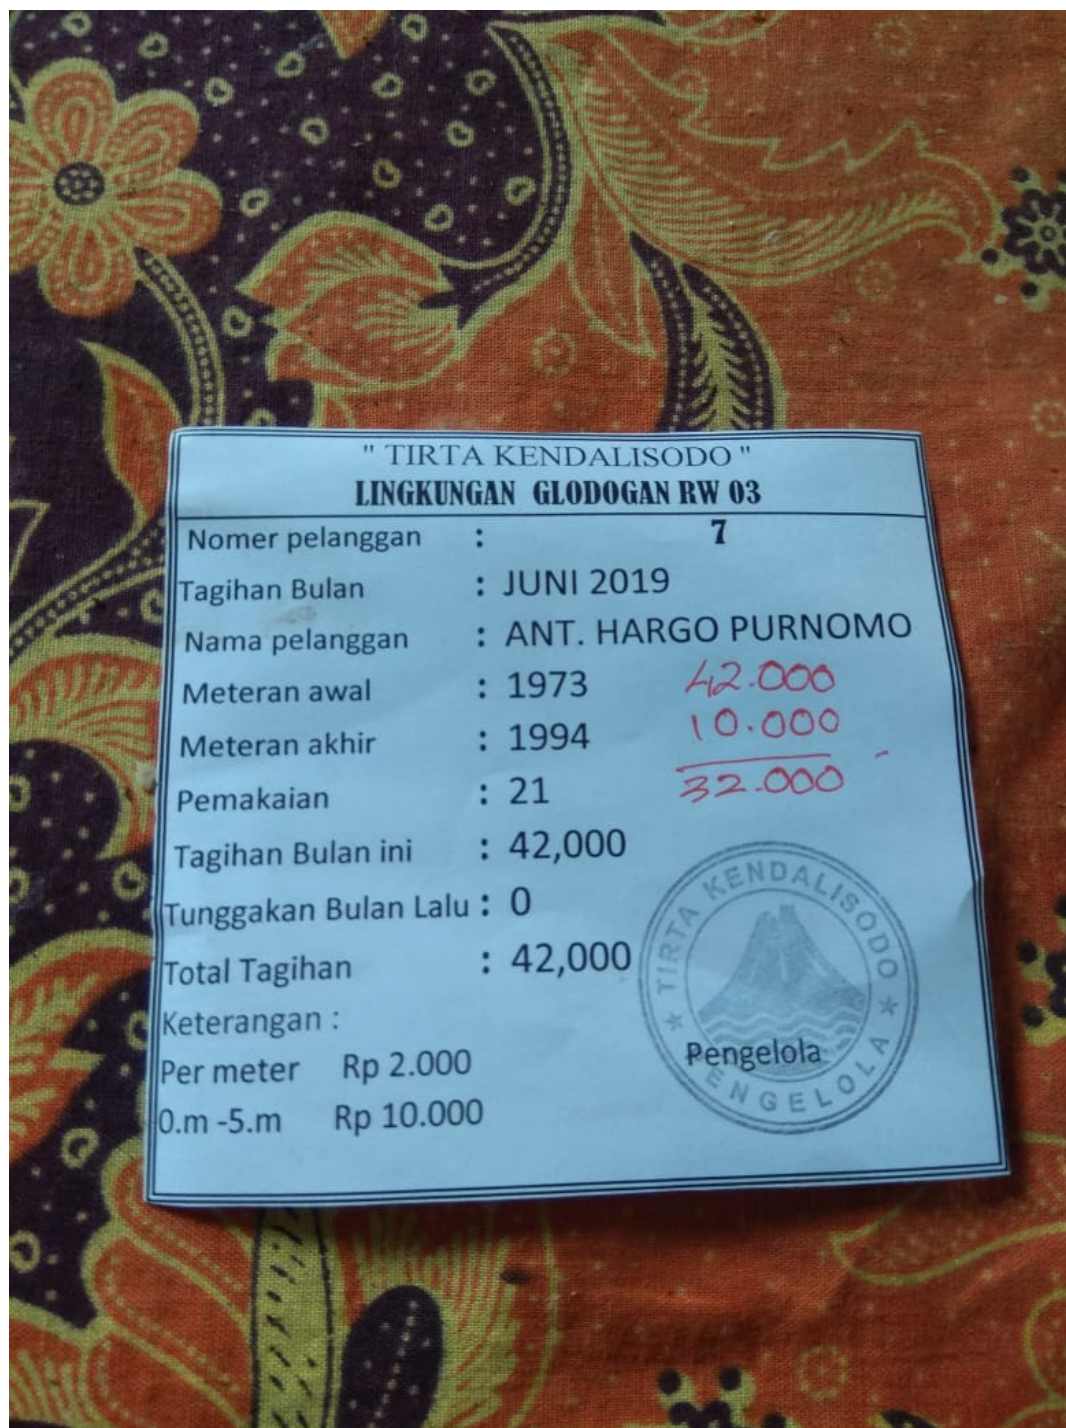 " TIRTA KENDALISODO "
LINGKUNGAN GLODOGAN RW 03
Nomer pelanggan : 7
Tagihan Bulan : JUNI 2019
Nama pelanggan : ANT. HARGO PURNOMO
Meteran awal : 1973 42.000
Meteran akhir : 1994 10.000
Pemakaian : 21 32.000
Tagihan Bulan ini : 42,000
Tunggakan Bulan Lalu : 0
Total Tagihan : 42,000
Keterangan :
Per meter Rp 2.000
0.m -5.m Rp 10.000
TIRTA KENDALISODO
Pengelola
PENGELOLA